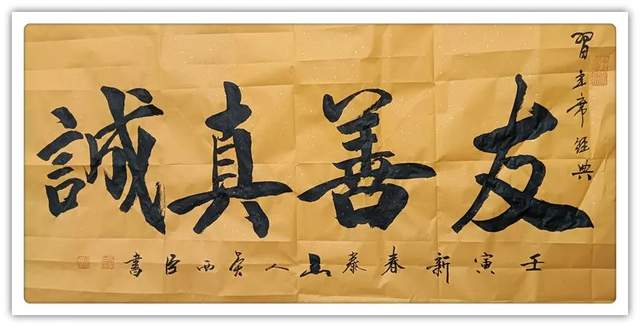 習主席經典
友善真誠
壬寅新春泰山人吴西臣書